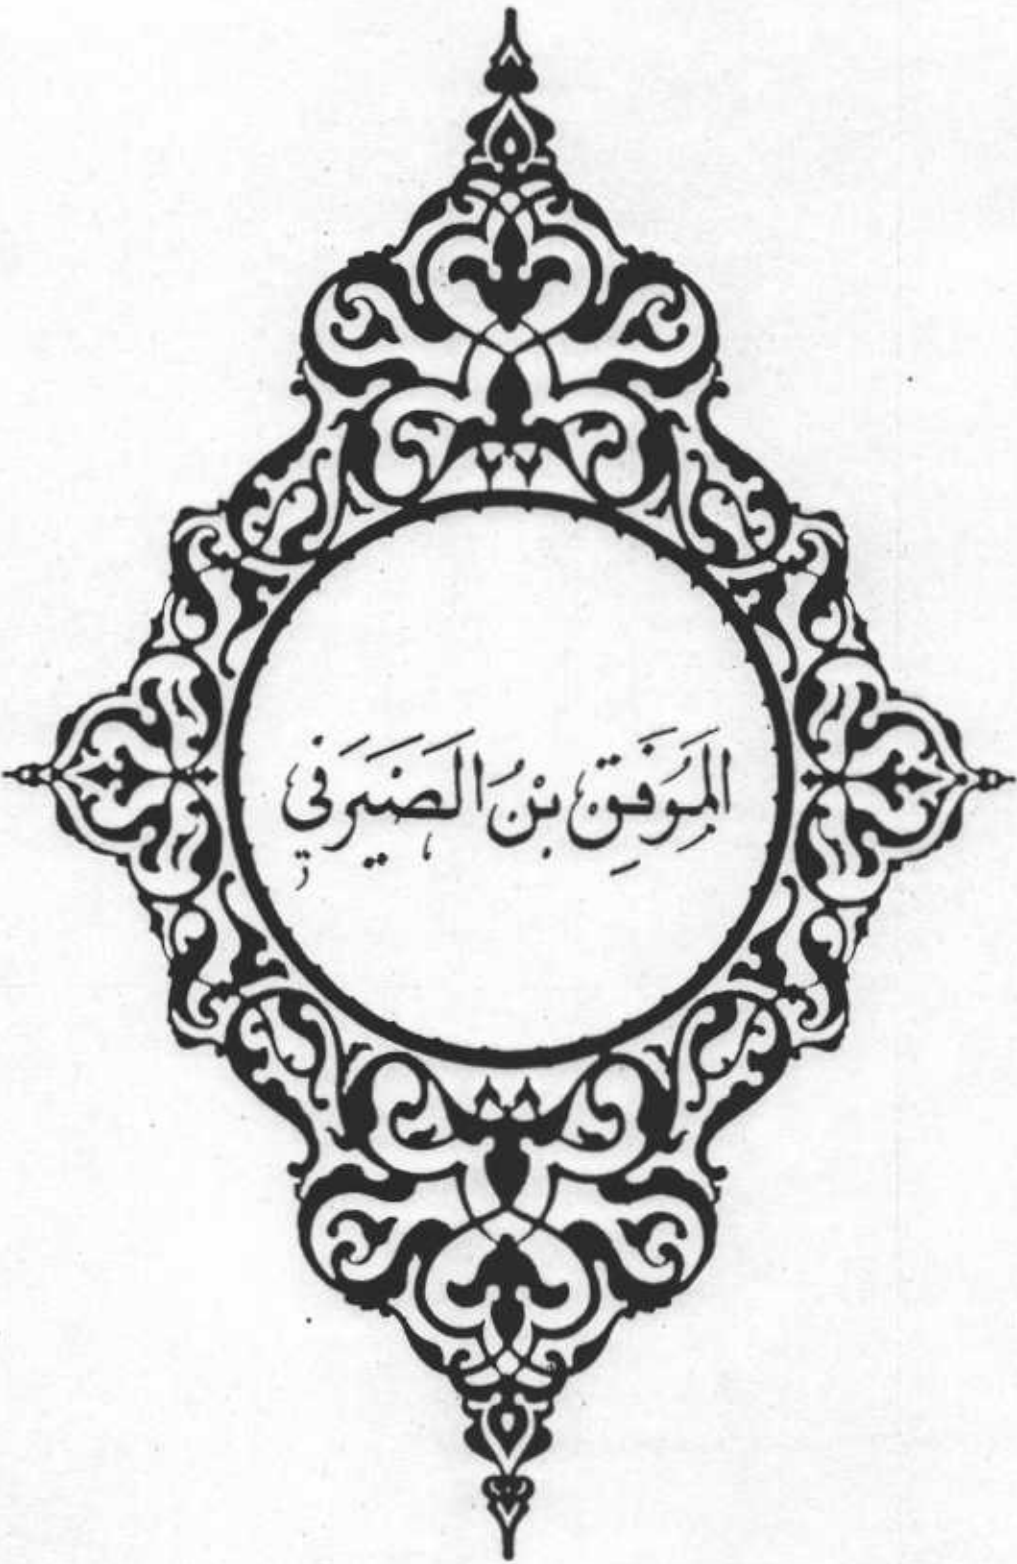 المَوَفَقِ بْنُ الصَيْرَفي